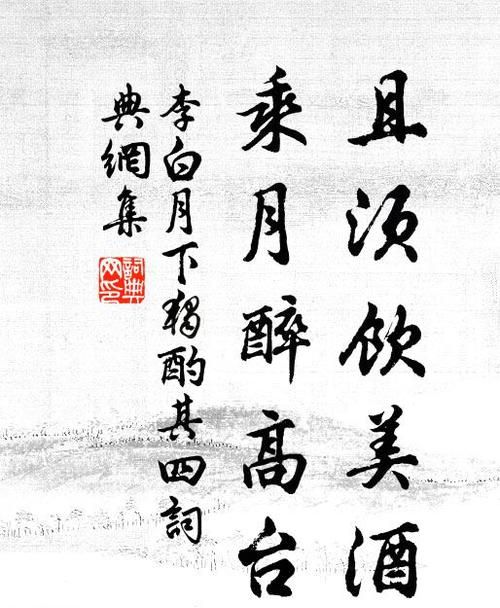 且须飲美酒
乘月醉高台
李白月下獨酌其四詞
典網集
詞典
网印